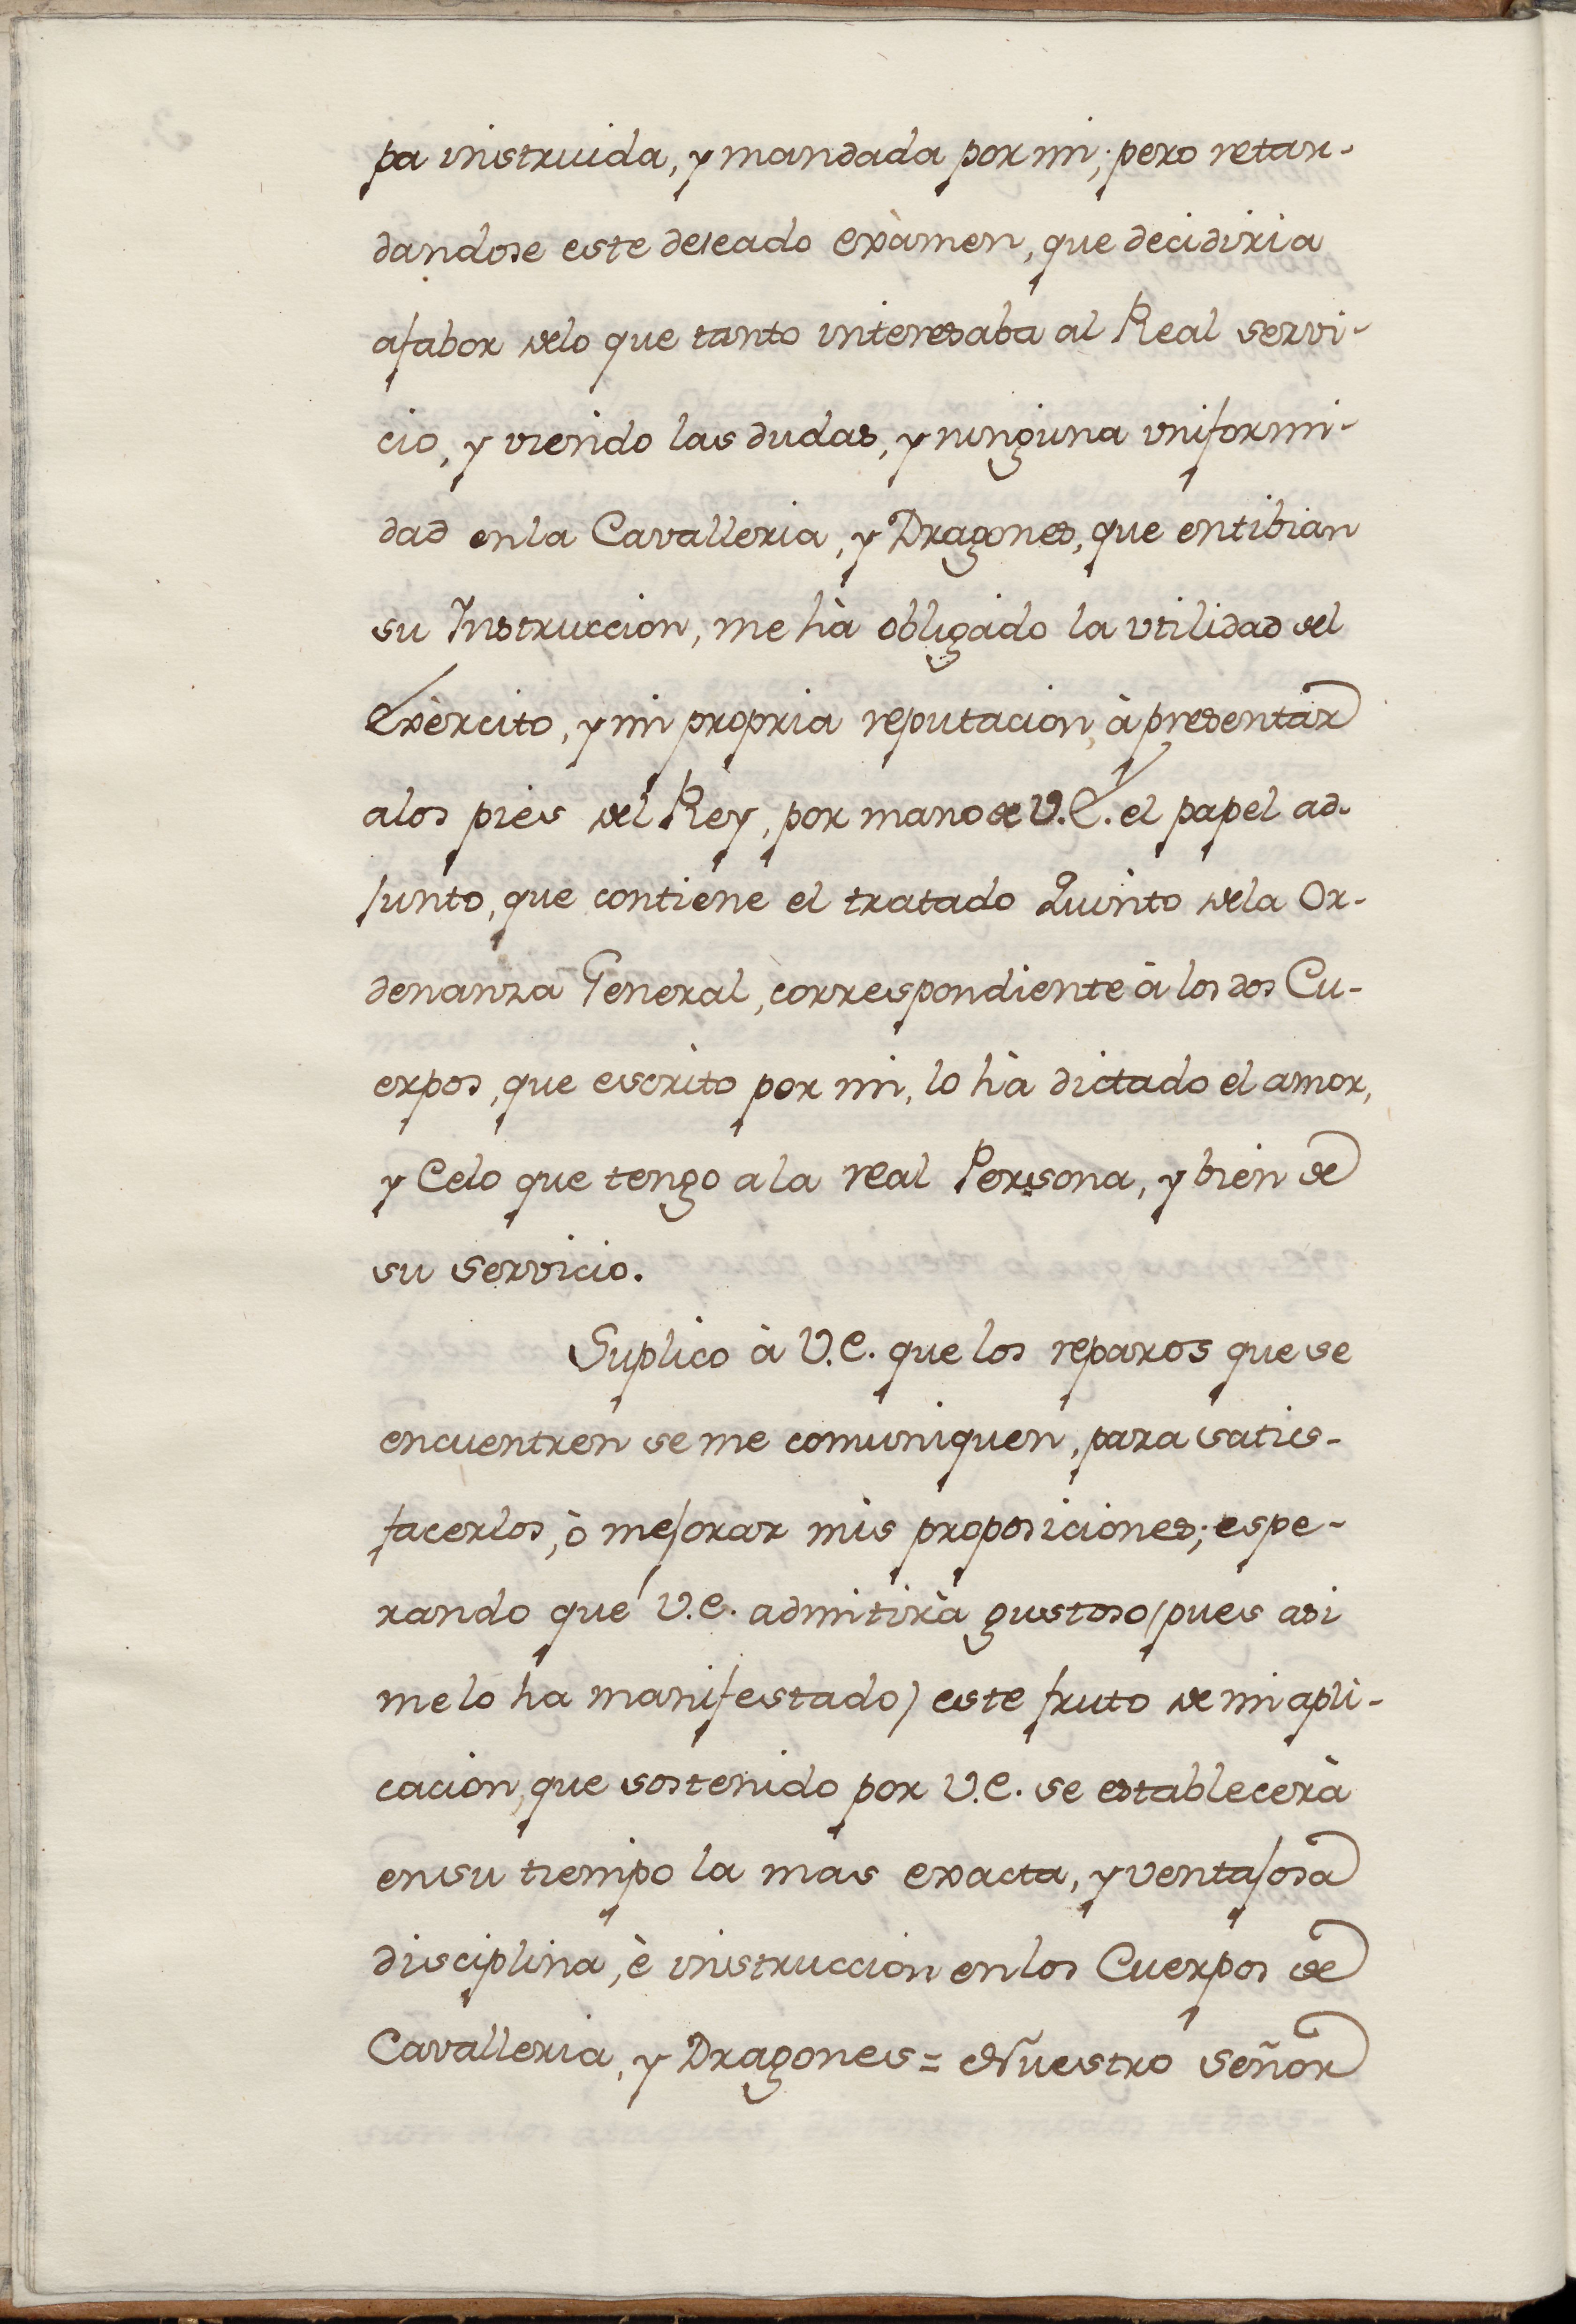 pa instruida, y mandada por mi; pero retar-
dandose este deseado exàmen, que decidiria
afabor delo que tanto interesaba al Real servi-
cio, y viendo las dudas, y ninguna vniformi-
dad enla Cavalleria, y Dragones, que entibian
su Instruccion, me hà obligado la vtilidad del
Exèrcito, y mi propria reputacion, à presentar
alos pies del Rey, por mano de V.E. el papel ad-
junto, que contiene el tratado Quinto dela Or-
denanza General, correspondiente à los dos Cu-
erpos, que escrito por mi, lo hà dictado el amor,
y Celo que tengo a la real Persona, y bien de
su servicio.
Suplico à V.E. que los reparos que se
encuentren se me comuniquen, para satis-
facerlos, ò mejorar mis proposiciones; espe-
rando que V.E. admitirà gustoso (pues asi
me lo ha manifestado) este fruto de mi apli-
cacion, que sostenido por V.E. se establecerà
en su tiempo la mas exacta, y ventajosa
disciplina, è instruccion en los Cuerpos de
Cavalleria, y Dragones = Nuestro Señor